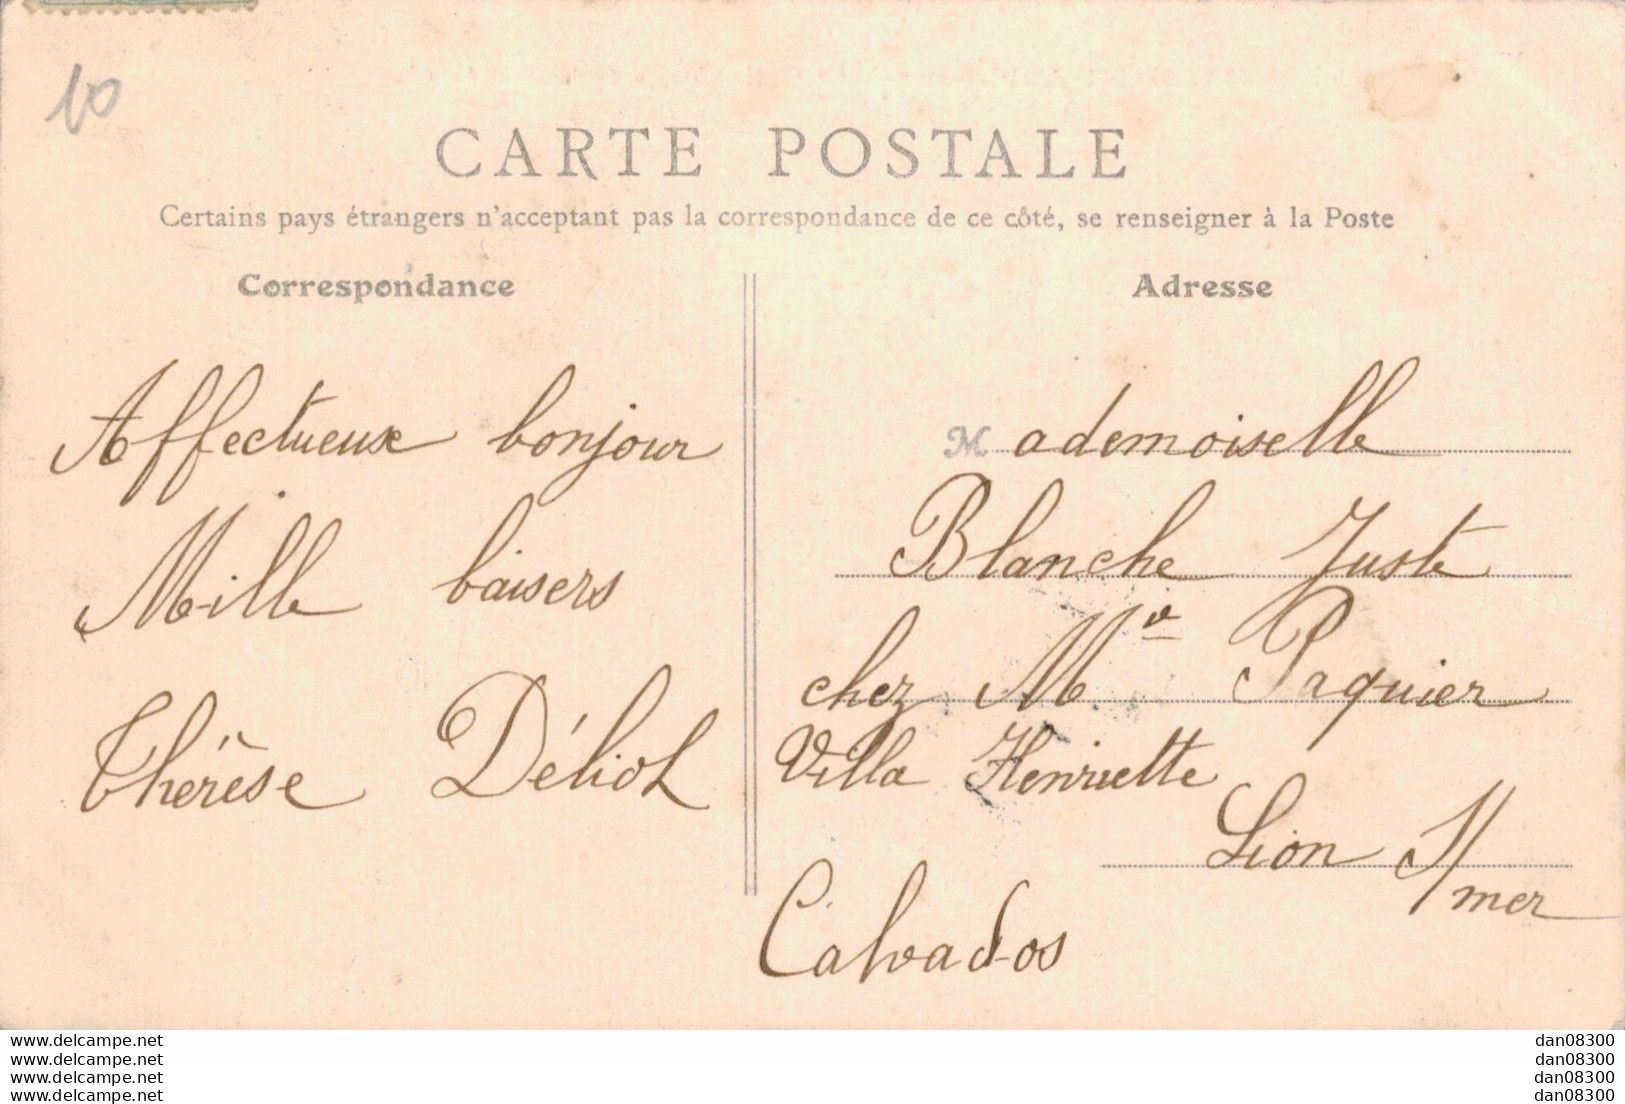 10
CARTE POSTALE
Certains pays étrangers n'acceptant pas la correspondance de ce côté, se renseigner à la Poste
Correspondance
Affectueux bonjour
Mille baisers
Thérèse Déliot
Adresse
Mademoiselle
Blanche Juste
chez Mr Paquier
Villa Henriette
Lion S/mer
Calvados
www.delcampe.net
www.delcampe.net
www.delcampe.net
www.delcampe.net
dan08300
dan08300
dan08300
dan08300